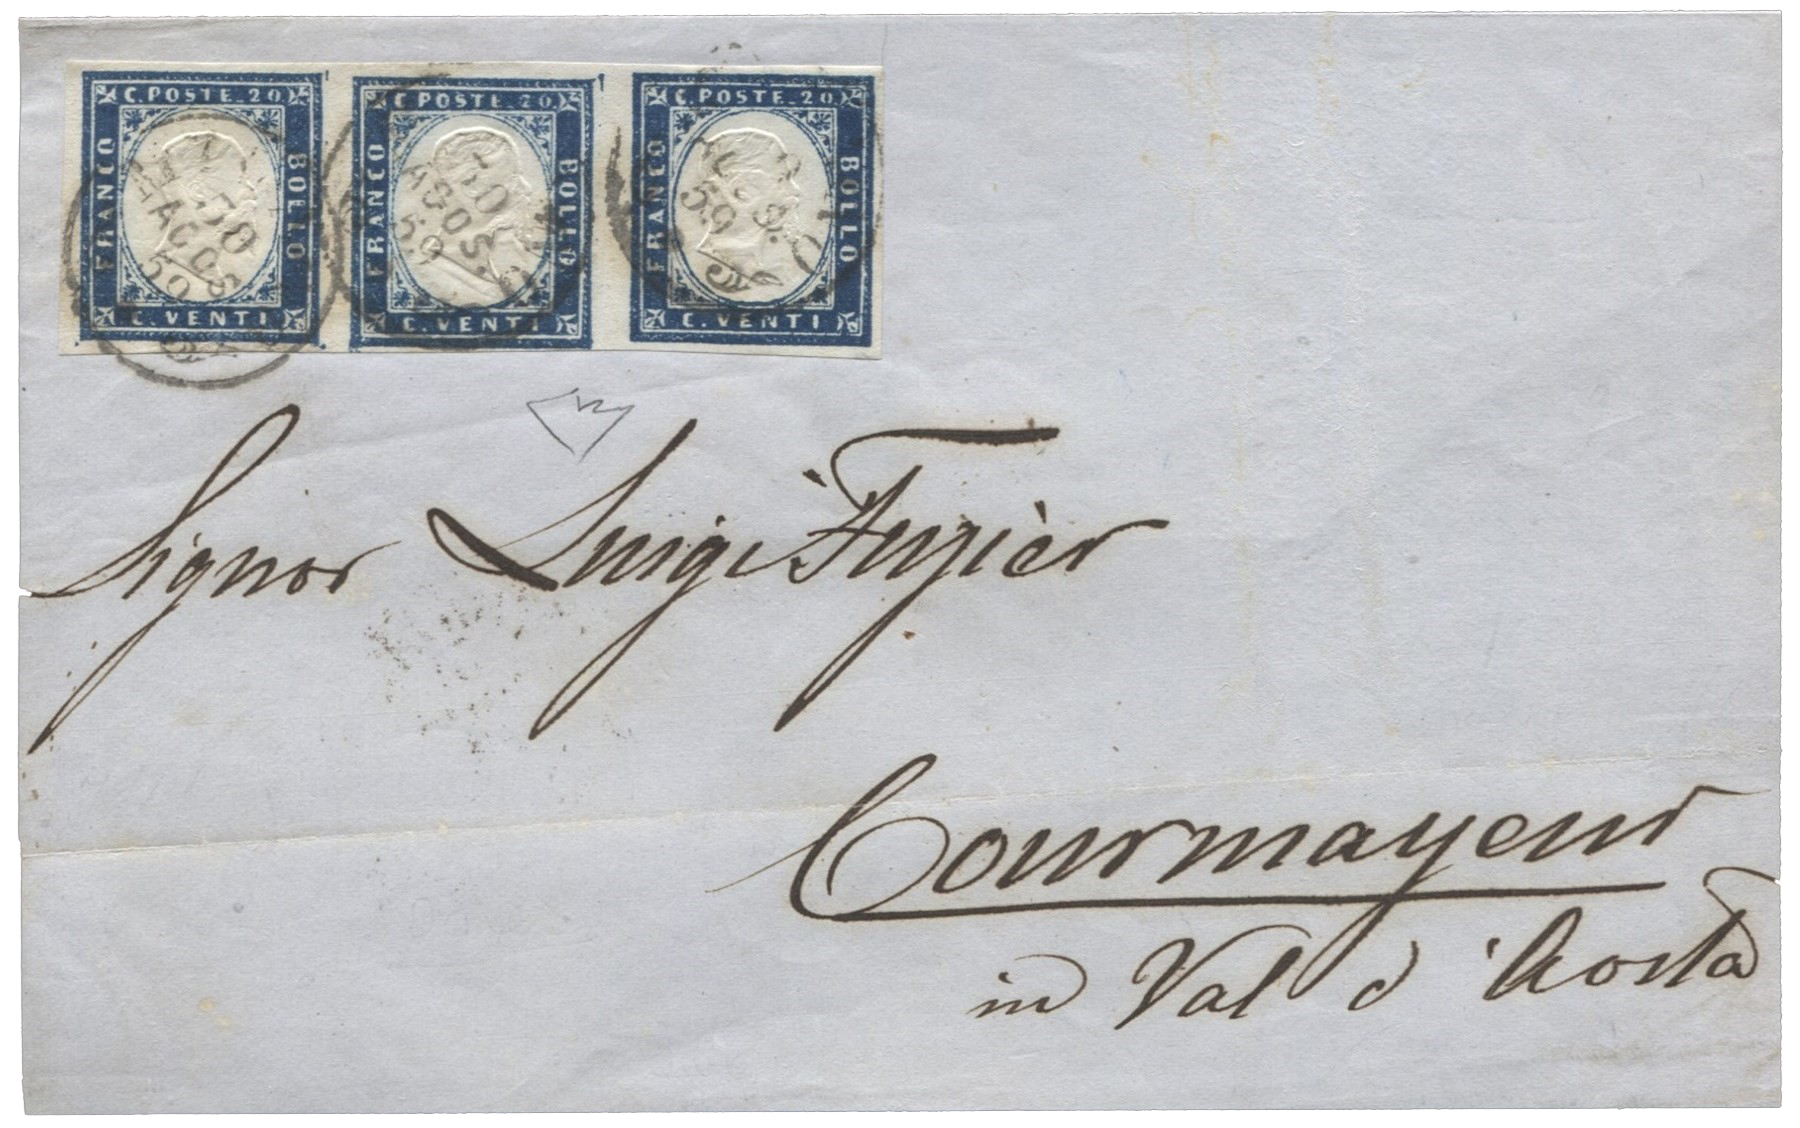 C. POSTE. 20
FRANCO
BOLLO
C. VENTI
C. POSTE. 20
FRANCO
BOLLO
C. VENTI
C. POSTE. 20
FRANCO
BOLLO
C. VENTI
30
AGOS.
59
30
AGOS.
59
AGOS.
59
Signor Luigi Fuzièr
Courmayeur
in Val d'Aosta